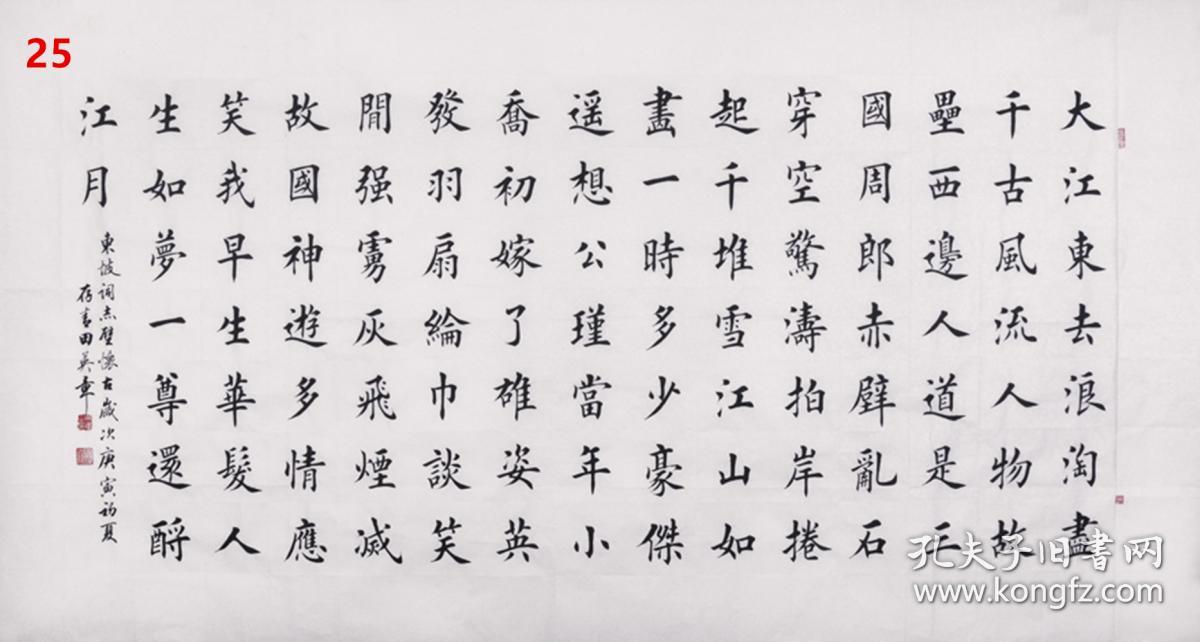 25
大江東去浪淘盡
千古風流人物故
壘西邊人道是三
國周郎赤壁亂石
穿空驚濤拍岸捲
起千堆雪江山如
畫一時多少豪傑
遥想公瑾當年小
喬初嫁了雄姿英
發羽扇綸巾談笑
閒强虜灰飛煙滅
故國神遊多情應
笑我早生華髮人
生如夢一尊還酹
江月
東坡詞赤壁懷古歲次庚寅初夏
存青田英章
孔夫子旧书网
www.kongfz.com